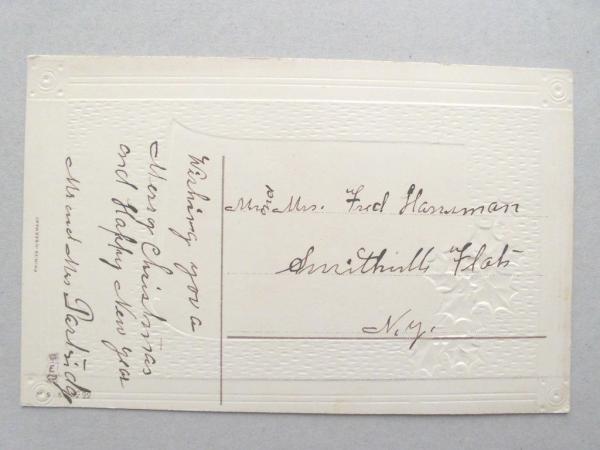 Wishing you a
Merry Christmas
and Happy New year
Mr and Mrs Partridge
Mr and Mrs. Fred Hansman
Smithville Flats
N.Y.